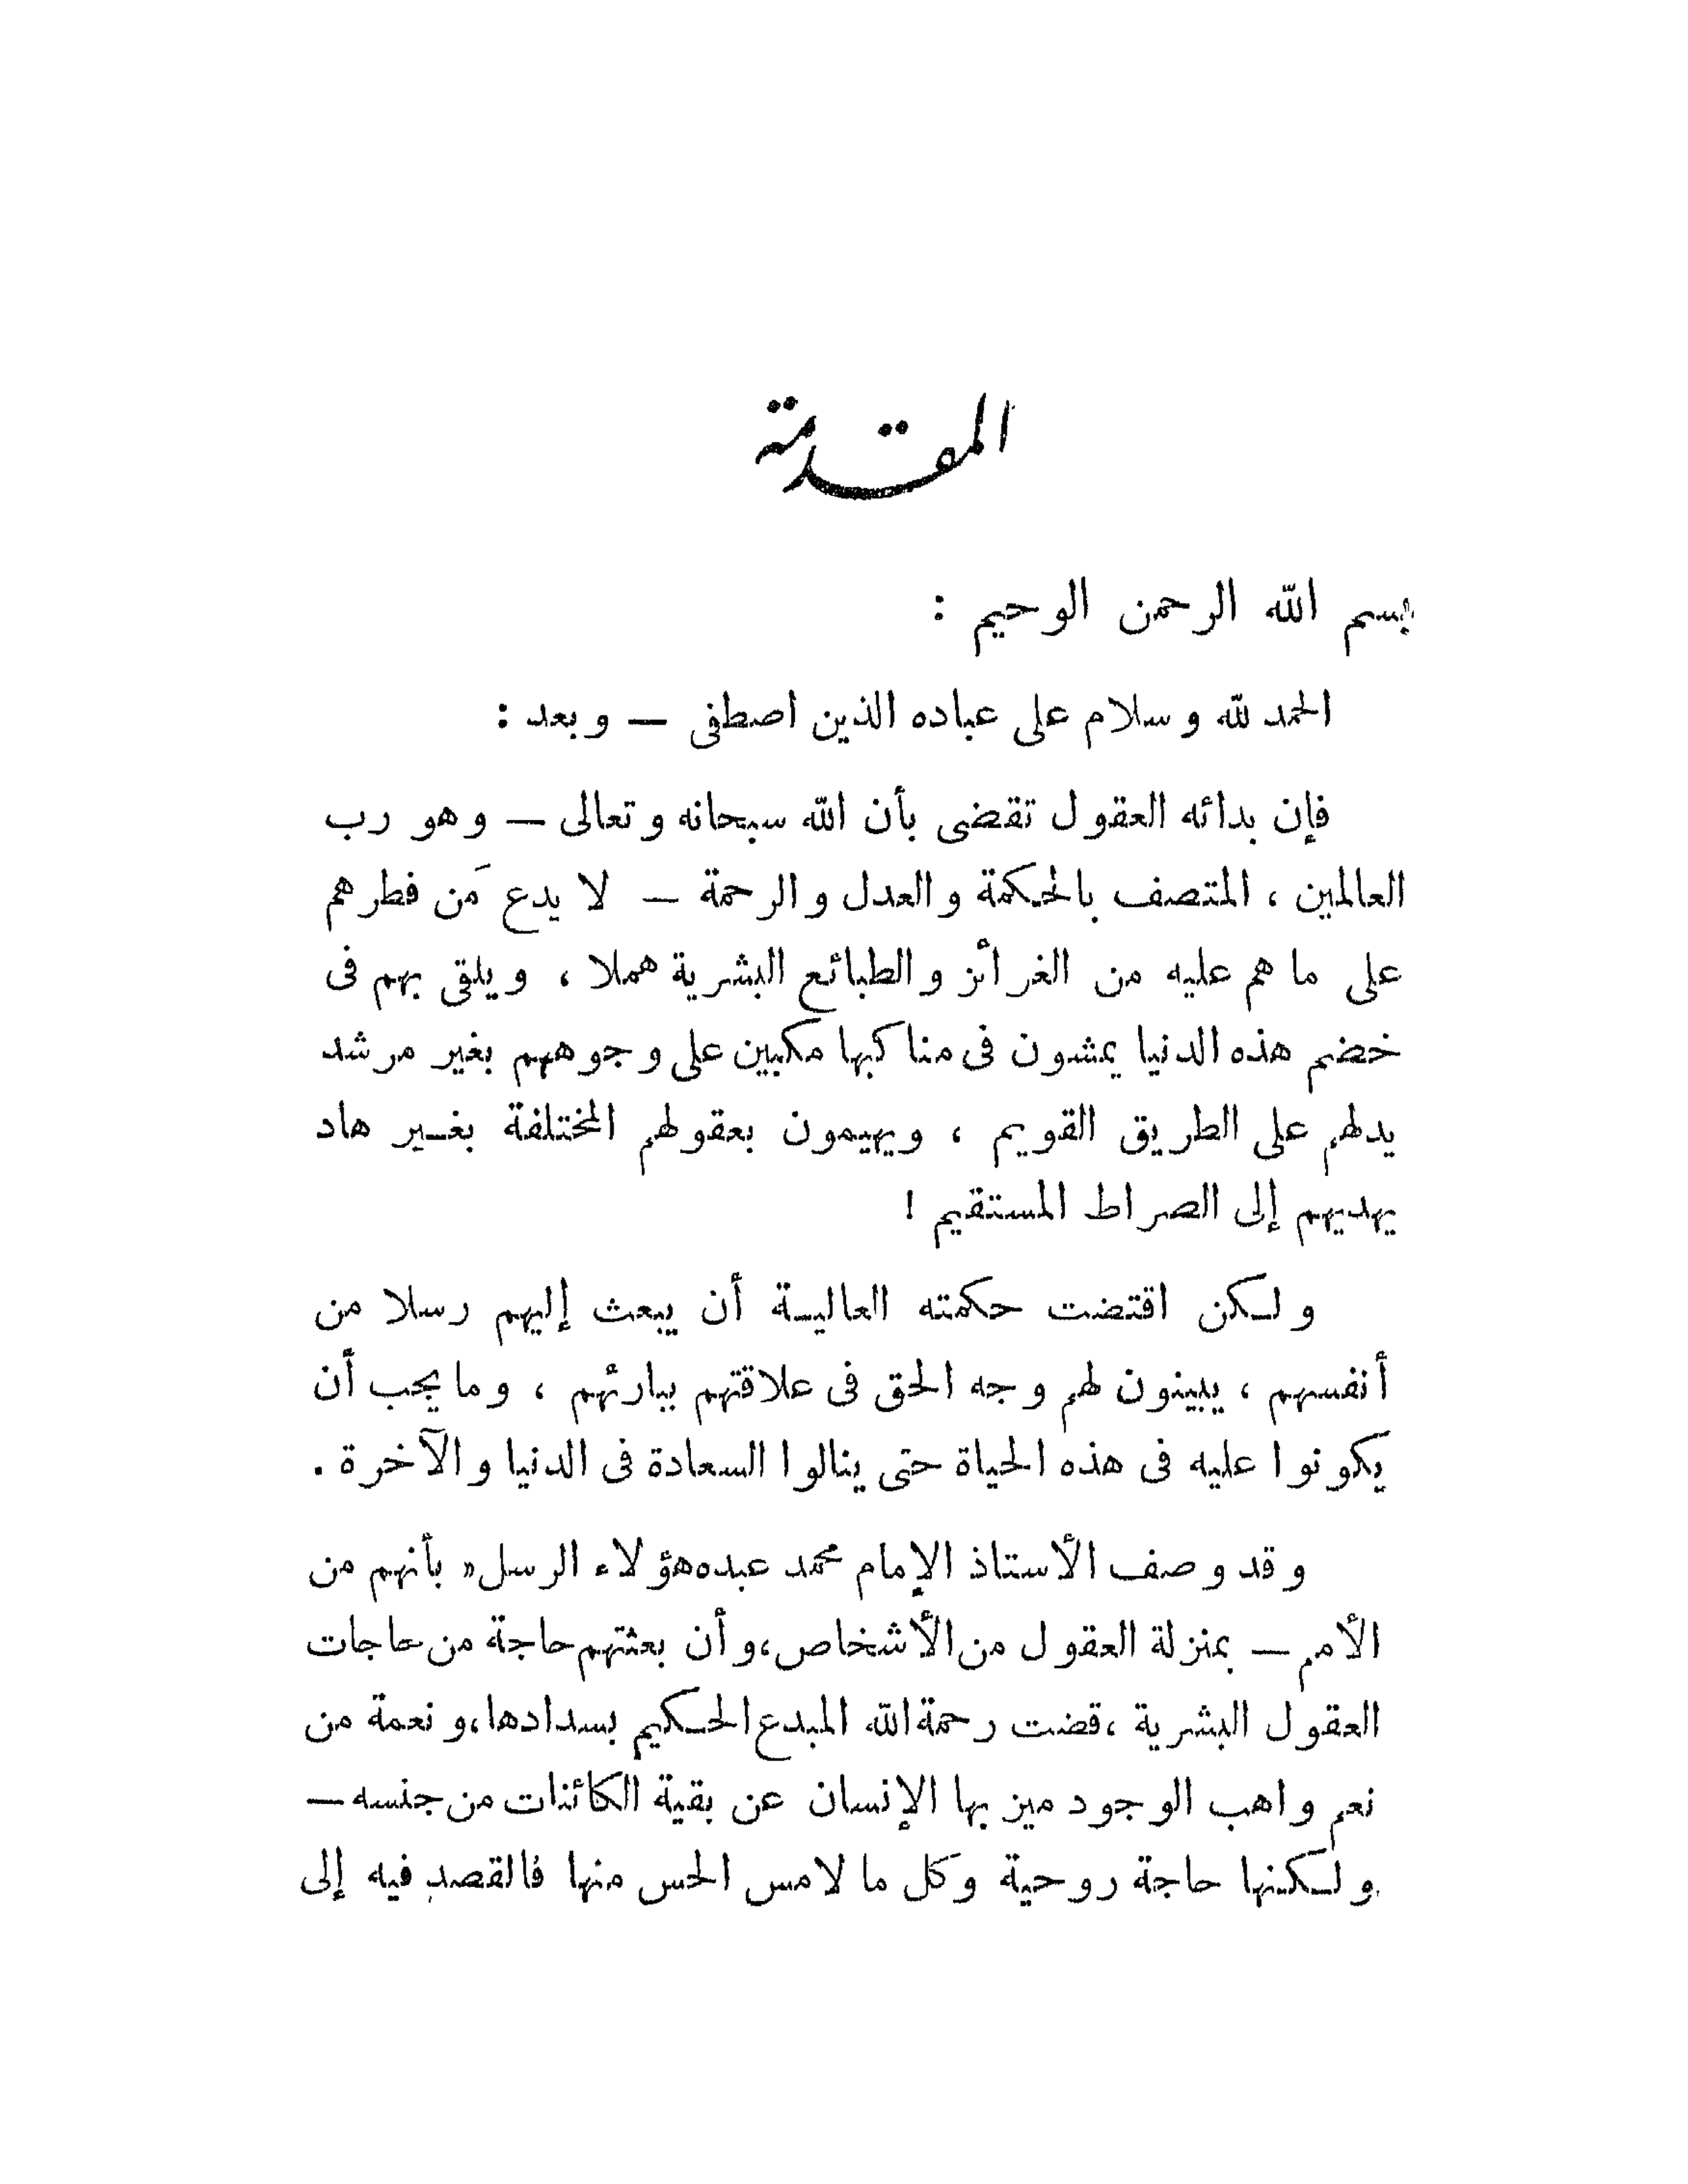 المقدمة
بسم الله الرحمن الوحيم :
الحمد لله وسلام على عباده الذين اصطفى — وبعد :
فإن بدائه العقول تقضى بأن الله سبحانه وتعالى — وهو رب
العالمين ، المتصف بالحكمة والعدل والرحمة — لا يدع مَن فطرهم
على ما هم عليه من الغرائز والطبائع البشرية هملا ، ويلقى بهم فى
خضم هذه الدنيا يمشون فى مناكبها مكبين على وجوههم بغير مرشد
يدلهم على الطريق القويم ، ويهيمون بعقولهم المختلفة بغير هاد
يهديهم إلى الصراط المستقيم !
ولكن اقتضت حكمته العالية أن يبعث إليهم رسلا من
أنفسهم ، يبينون لهم وجه الحق فى علاقتهم ببارئهم ، وما يجب أن
يكونوا عليه فى هذه الحياة حتى ينالوا السعادة فى الدنيا والآخرة .
وقد وصف الأستاذ الإمام محمد عبده هؤلاء الرسل » بأنهم من
الأمم — بمنزلة العقول من الأشخاص، وأن بعثتهم حاجة من حاجات
العقول البشرية ، قضت رحمة الله المبدع الحكيم بسدادها، ونعمة من
نعم واهب الوجود ميز بها الإنسان عن بقية الكائنات من جنسه —
ولكنها حاجة روحية وكل ما لامس الحس منها فالقصد فيه إلى